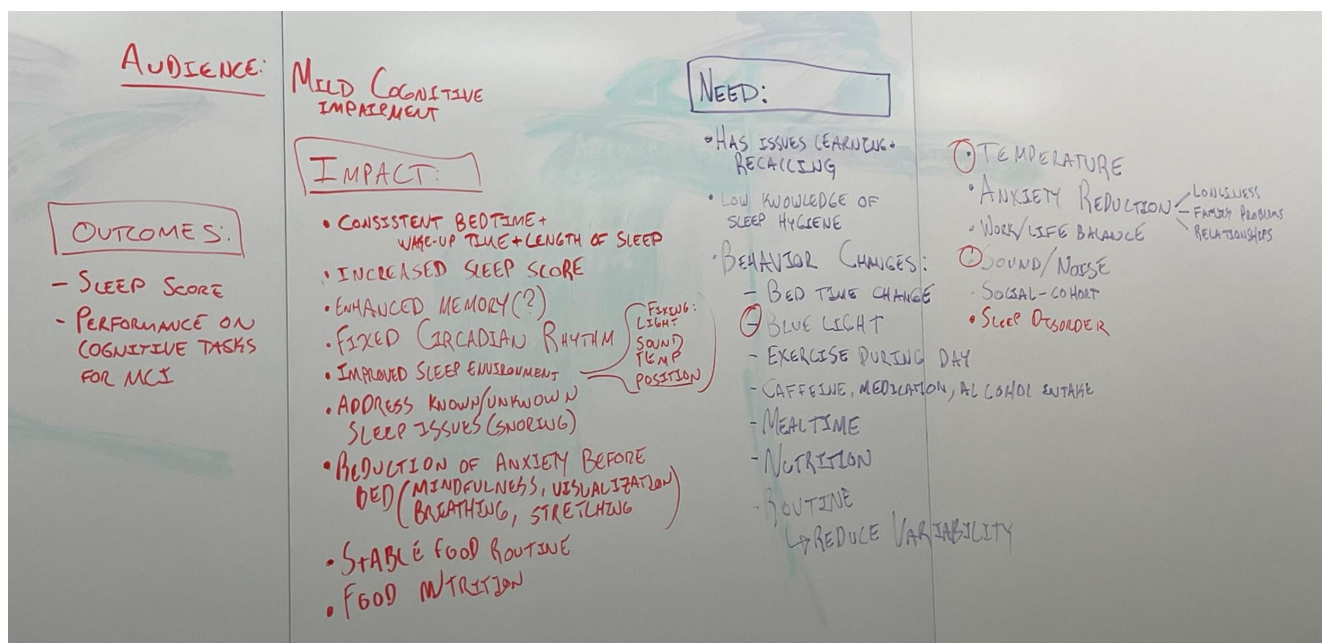 AUDIENCE:
MILD COGNITIVE
IMPAIRMENT
OUTCOMES:
- SLEEP SCORE
- PERFORMANCE ON
COGNITIVE TASKS
FOR MCI
IMPACT:
• CONSISTENT BEDTIME +
WAKE-UP TIME + LENGTH OF SLEEP
• INCREASED SLEEP SCORE
• ENHANCED MEMORY (?)
• FIXED CIRCADIAN RHYTHM
• IMPROVED SLEEP ENVIRONMENT
FIXING:
LIGHT
SOUND
TEMP
POSITION
• ADDRESS KNOWN/UNKNOWN
SLEEP ISSUES (SNORING)
• REDUCTION OF ANXIETY BEFORE
BED (MINDFULNESS, VISUALIZATION
BREATHING, STRETCHING)
• STABLE FOOD ROUTINE
• FOOD NUTRITION
NEED:
• HAS ISSUES LEARNING +
RECALLING
• LOW KNOWLEDGE OF
SLEEP HYGIENE
• BEHAVIOR CHANGES:
- BED TIME CHANGE
- BLUE LIGHT
- EXERCISE DURING DAY
- CAFFEINE, MEDICATION, ALCOHOL INTAKE
- MEALTIME
- NUTRITION
- ROUTINE
↳ REDUCE VARIABILITY
• TEMPERATURE
• ANXIETY REDUCTION
LONLINESS
FAMILY PROBLEMS
RELATIONSHIPS
• WORK/LIFE BALANCE
• SOUND/NOISE
• SOCIAL-COHORT
• SLEEP DISORDER